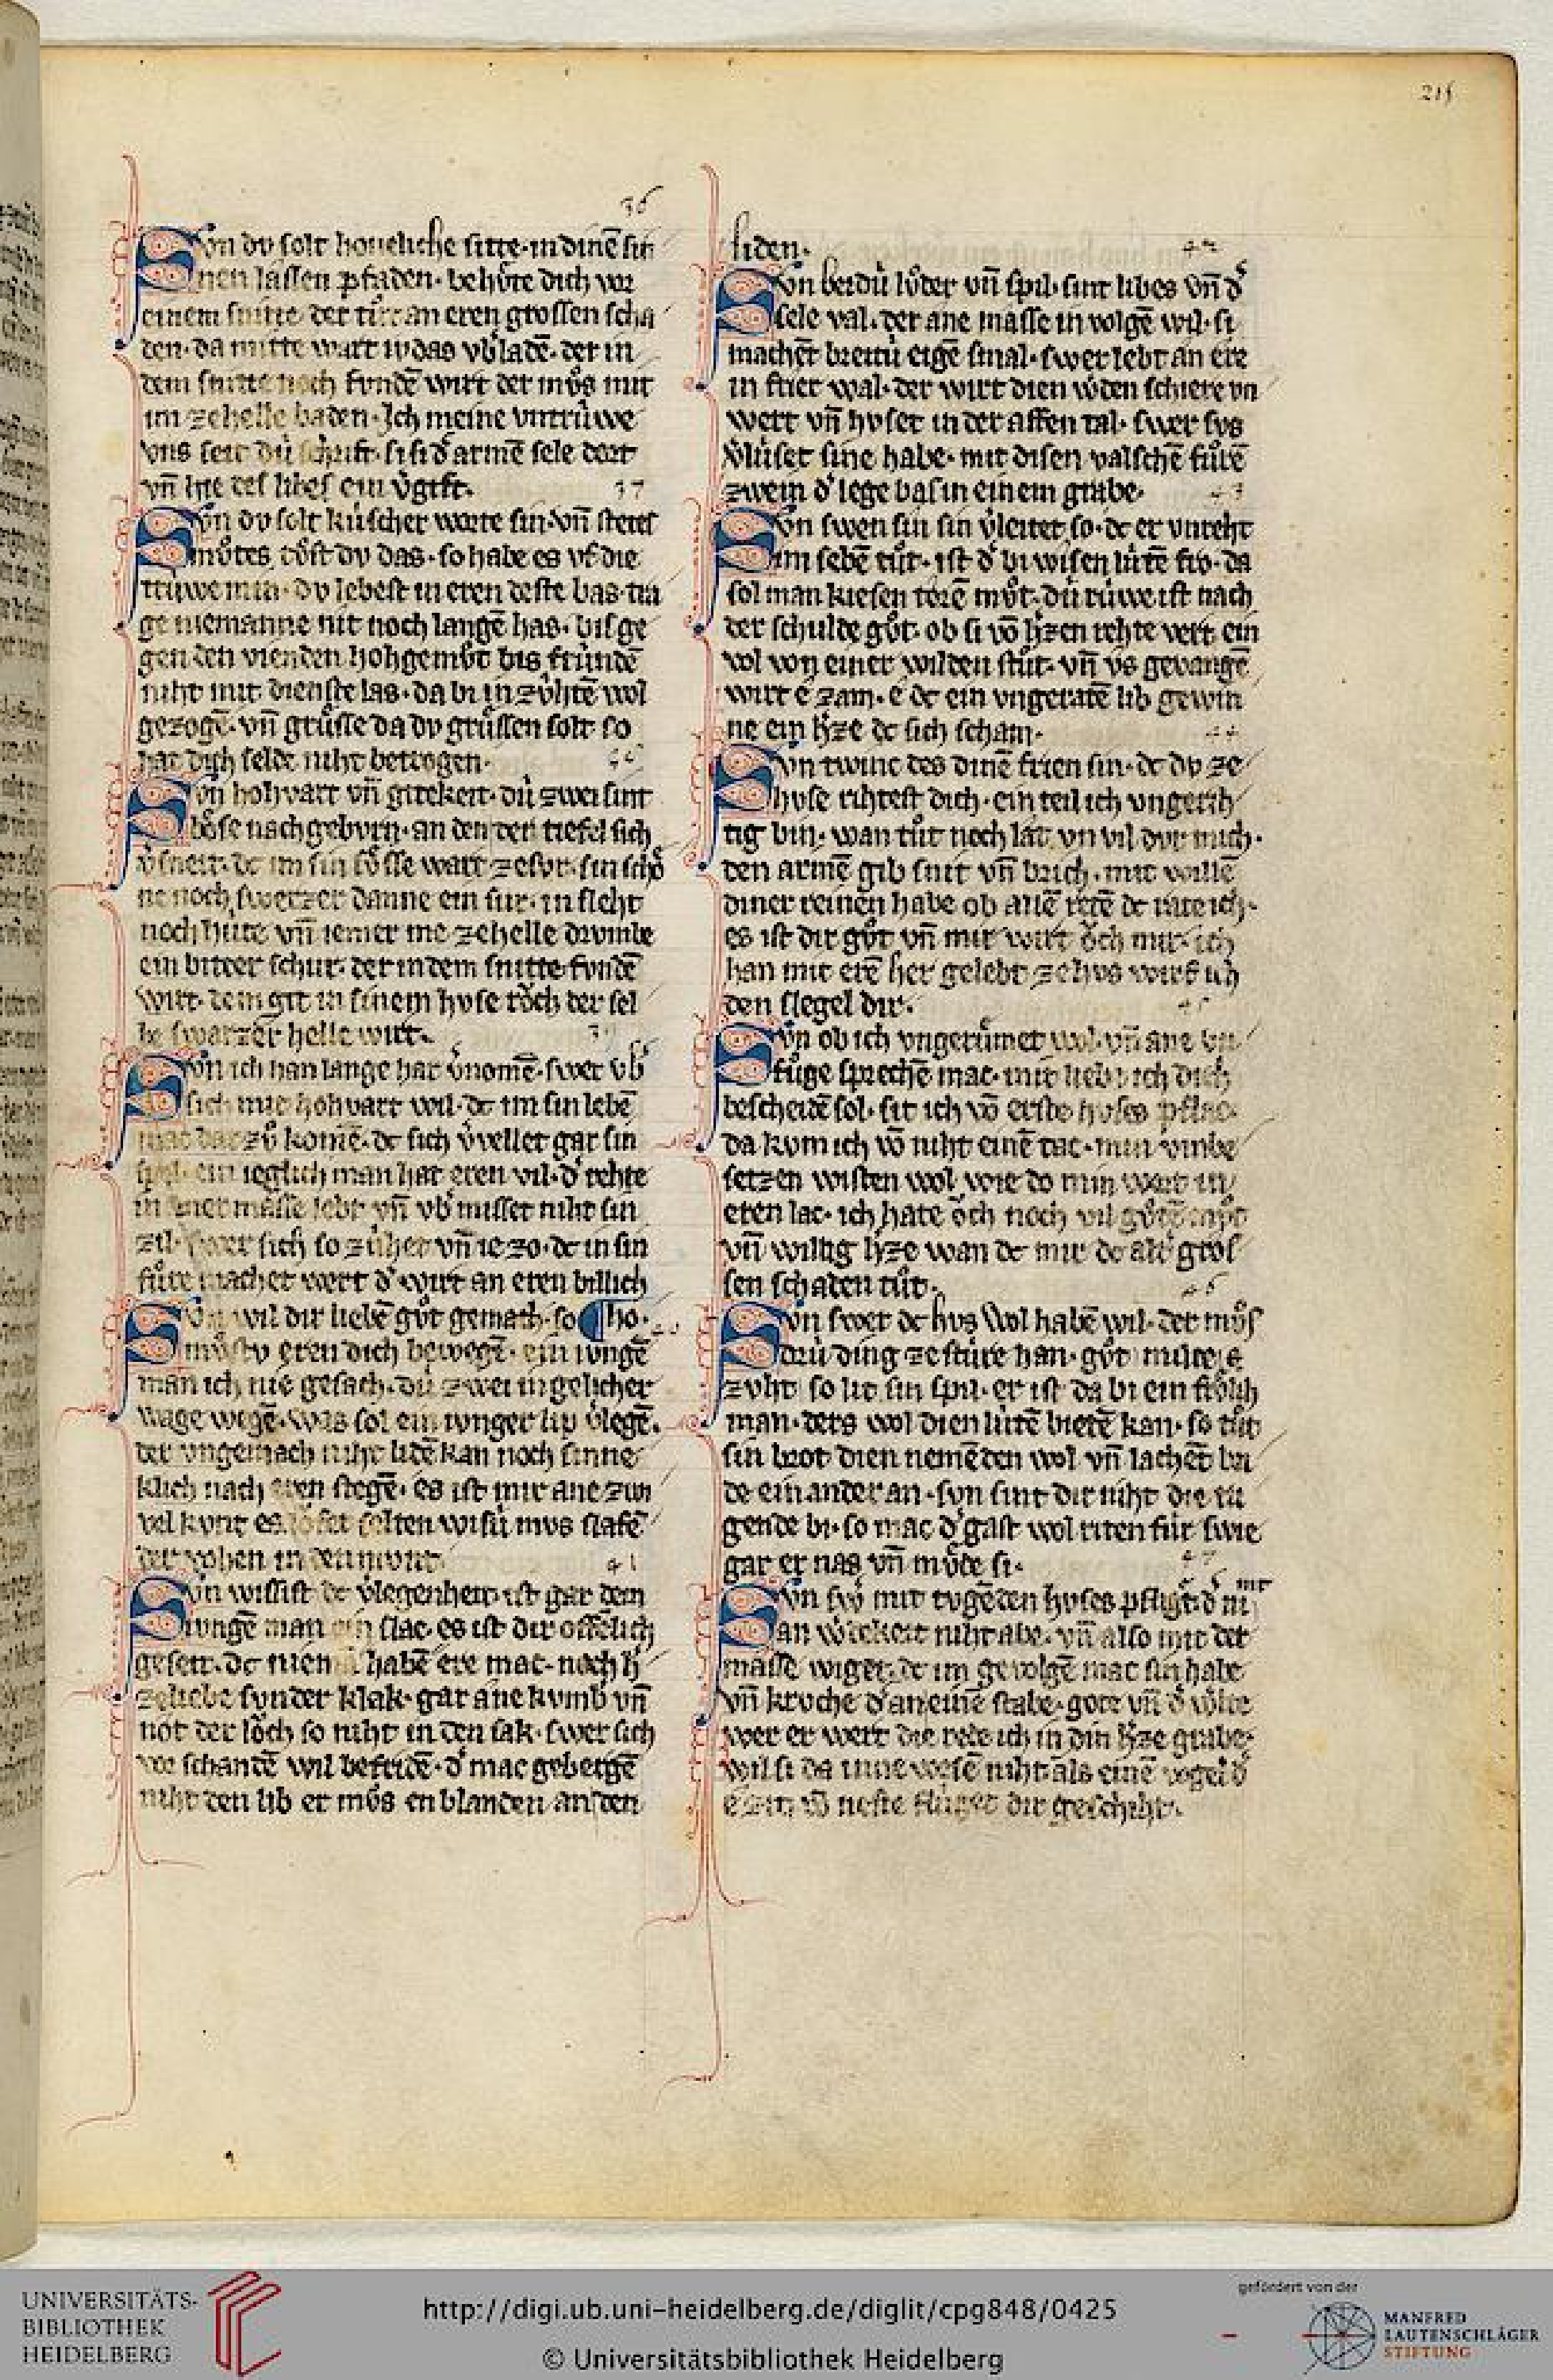 215
36
Svn dv solt houeliche sitte · in dinē sin
nen lassen pfaden · behv̊te dich vor
einem snitte der tv̊t an eren grossen scha
den · da mitte wart iv das vb᾽ladē · der in
dem snitte noch fvndē wirt der mv̊s mit
im ze helle baden · Ich meine vntrúwe
vns seit dú schrift · si si d᾽ armē sele dort
vn̄ hie des libes ein v᾽gift ·
37
Svn dv solt kúscher worte sin · vn̄ stetes
mv̊tes tv̊st dv das · so habe es vf die
trúwe min · dv lebest in eren deste bas · tra
ge niemanne nit noch langē has · bis ge
gen den vienden hohgemv̊t bis frúndē
niht mit dienste las · da bi in zv́htē wol
gezogē · vn̄ grv̊sse da dv grv̊ssen solt · so
hat dich selde niht betrogen ·
Svn hohvart vn̄ gitekeit · dú zwei sint
bo᷄se nachgebvrn · an den der tiefel sich
v᾽sneit · dc im sin sv̊sse wart ze svr · sin scho᷄
ne noch swerzer danne ein sur · in sleht
noch húte vn̄ iemer me ze helle drvmbe
ein bitter schur · der in dem snitte fvndē
wirt · dem git in sinem hvse rǒch der sel
be swarzer helle wirt ·
Svn ich han lange har v᾽nomē · swer vb᾽
sich mit hohvart wil · dc im sin lebē
mac dar zv̊ komē · dc sich v᾽vellet gar sin
spil · ein ieglich man hat eren vil · d᾽ rehte
in siner masse lebt vn̄ vb᾽misset niht sin
zil · swer sich so zúhet vn̄ ie zo · dc in sin
fv̊re machet wert d᾽ wirt an eren billich
Svn wil dir liebē gv̊t gemach · so ¶ ho ·
mv̊stv eren dich bewegē · ein iungē
man ich nie gesach · dú zwei in gelicher
wage wegē · was sol ein iunger lip v᾽legē ·
der vngemach niht lidē kan noch sinne
klich nach eren stegē · es ist mir ane zwi
vel kvnt es lǒfet selten wisú mvs slafē
der vohen in den mvnt ·
41
Svn wissist dc v᾽legenheit · ist gar dem
iungē man ein slac · es ist dir offēlich
geseit · dc nieman habē ere mac · noch h᾽
zeliebe svnder klak · gar ane kvmb᾽ vn̄
not der lǒch so niht in den sak · swer sich
vor schandē wil befridē · d᾽ mac gebergē
niht den lib er mv̊s enblanden an den
liden ·
42
Svn beidú lv̊der vn̄ spil · sint libes vn̄ d᾽
sele val · der ane masse in volgē wil · si
machēt breitú eigē smal · swer lebt an ere
in frier wal · der wirt dien w᾽den schiere vn
wert vn̄ hvset in der affen tal · swer svs
v᾽lúset sine habe · mit disen valschē fůrē
zwein d᾽ lege bas in einem grabe ·
43
Svn swen sin sin v᾽leitet so · dc er vnreht
im selbē tůt · ist d᾽ bi wisen lútē fro · da
sol man kiesen torē můt · dú rúwe ist nach
der schulde gůt · ob si vō h᾽zen rehte vert · ein
vol von einer wilden stůt · vn̄ vs gevangē
wirt e zam · e dc ein vngeratē lib gewin
ne ein h᾽ze dc sich scham ·
44
Svn twinc des dinē frien sin · dc dv ze
hvse rihtest dich · ein teil ich vngerih
tig bin · wan tůt noch lat vn vil dvr mich ·
den armē gib snit vn̄ brich · mit willē
diner reinen habe ob allē retē dc rate ich ·
es ist dir gůt vn̄ mir wirt ǒch mir · ich
han mit erē her gelebt ze hvs wirf ich
den slegel dir ·
45
Svn ob ich vngerůmet wol · vn̄ ane vn
fůge sprechē mac · mit lieb ich dich
bescheidē sol · sit ich vō erste hvses pflac
da kom ich vō niht einē tac · min vmbe
setzen wisten wol wie do min wort in
eren lac · ich hate ǒch noch vil gůtē mv̊t
vn̄ willig h᾽ze wan dc mir dc alt᾽ gros
sen schaden tůt ·
46
Svn swer dc hvs wol habē wil · der můs
drú ding ze stúre han · gůt milte
zvht so lit sin spil · er ist da bi ein frǒlich
man · ders wol dien lútē bietē kan · so tůt
sin brot dien nemēden wol vn̄ lachēt bei
de ein ander an · svn sint dir niht die tu
gende bi · so mac d᾽ gast wol riten fúr swie
gar er nas vn̄ můde si ·
47
Svn sw᾽ mit tvgēden hvses pfligt · d᾽ ni mt
an w᾽dekeit niht abe · vn̄ also mit der
masse wiget · dc im gevolgē mac sin habe
vn̄ kroche d᾽ an einē stabe · gote vn̄ d᾽ w᾽lte
wer er wert die rede ich in din h᾽ze grabe ·
wil si da inne wesē niht als einē vogel d᾽
e zit vō neste flúget dir geschiht ·
UNIVERSITÄTS-
BIBLIOTHEK
HEIDELBERG
http://digi.ub.uni-heidelberg.de/diglit/cpg848/0425
© Universitätsbibliothek Heidelberg
gefördert von der
MANFRED
LAUTENSCHLÄGER
STIFTUNG